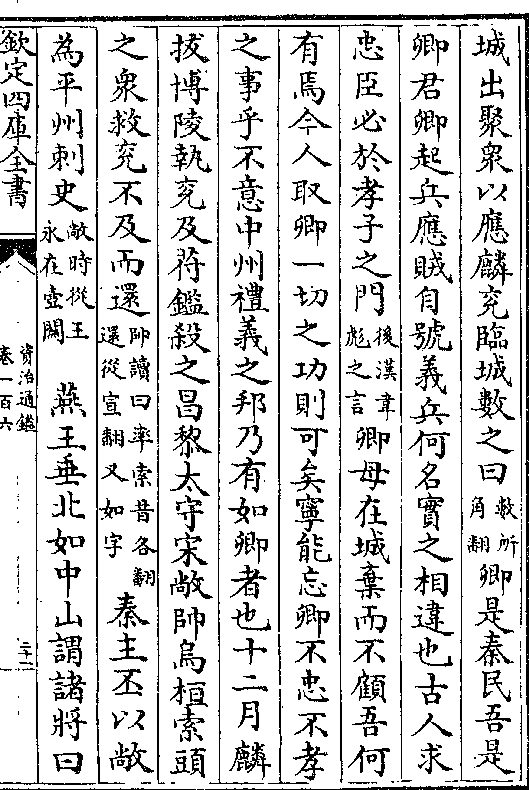 城出聚衆以應麟兗臨城數之曰數所角翻卿是秦民吾是
卿君卿起兵應賊自號義兵何名實之相違也古人求
忠臣必於孝子之門後漢韋彪之言卿母在城棄而不顧吾何
有焉今人取卿一切之功則可矣寧能忘卿不忠不孝
之事乎不意中州禮義之邦乃有如卿者也十二月麟
拔博陵執兗及苻鑑殺之昌黎太守宋敞帥烏桓索頭
之衆救兗不及而還帥讀曰率索昔各翻還從宣翻又如字秦主丕以敞
為平州刺史敞時從王永在壺關燕王垂北如中山謂諸將曰
欽定四庫全書
資治通鑑
卷一百六